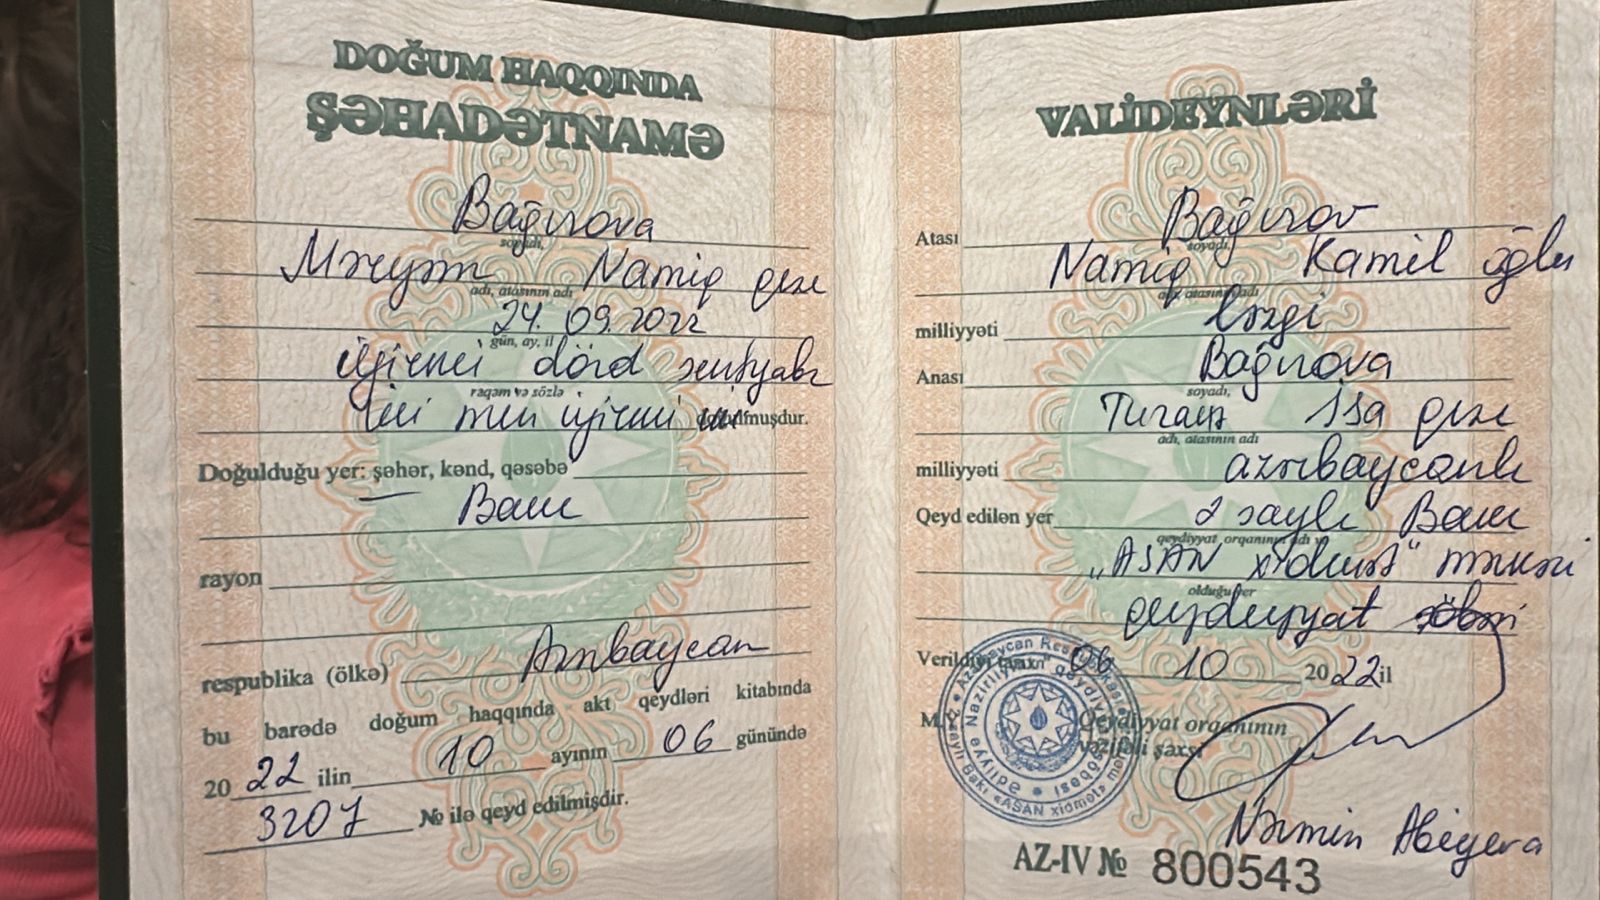 DOĞUM HAQQINDA
ŞƏHADƏTNAMƏ
Bağırova
soyadı,
Məryəm Namiq qızı
adı, atasının adı
24. 09. 2022
gün, ay, il
iyirmi dörd sentyabr
rəqəm və sözlə
iki min iyirmi iki doğulmuşdur.
Doğulduğu yer: şəhər, kənd, qəsəbə
Bakı
rayon
respublika (ölkə) Azərbaycan
bu barədə doğum haqqında akt qeydləri kitabında
20 22 ilin 10 ayının 06 günündə
3207 № ilə qeyd edilmişdir.
VALİDEYNLƏRİ
Atası Bağırov
soyadı,
Namiq Kamil oğlu
adı, atasının adı
milliyyəti ləzgi
Anası Bağırova
soyadı,
Turanə İsa qızı
adı, atasının adı
milliyyəti azərbaycanlı
Qeyd edilən yer 2 saylı Bakı
qeydiyyat orqanının adı və
"ASAN xidmət" mərkəzi
olduğu yer
qeydiyyat şöbəsi
Verildiyi tarix 06 10 2022 il
M.Y. Qeydiyyat orqanının
vəzifəli şəxsi
Nərmin Abiyeva
AZ-IV № 800543